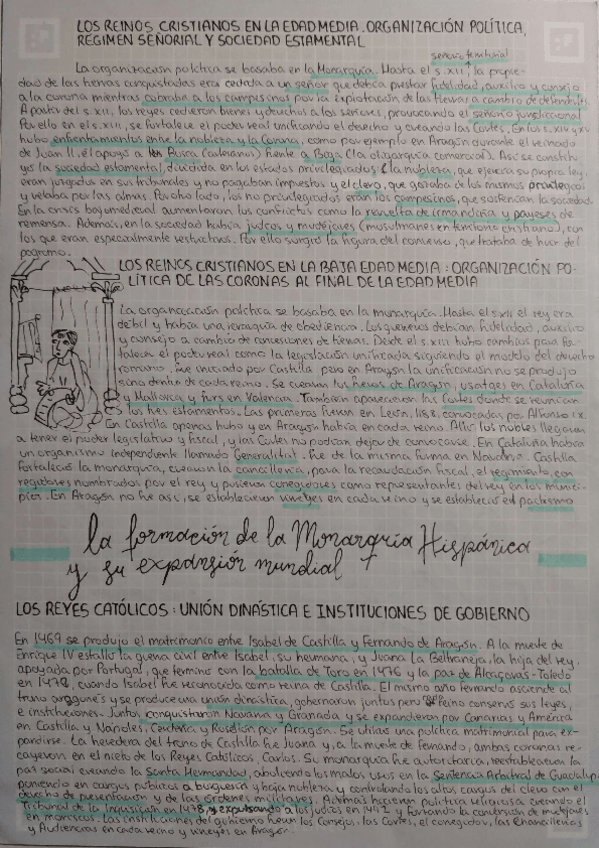 LOS REINOS CRISTIANOS EN LA EDAD MEDIA. ORGANIZACIÓN POLÍTICA,
RÉGIMEN SEÑORIAL Y SOCIEDAD ESTAMENTAL
señorío territorial
La organización política se basaba en la Monarquía. Hasta el s.XII, la propie-
dad de las tierras conquistadas era cedida a un señor que debía prestar fidelidad, auxilio y consejo
a la corona mientras cobraba a los campesinos por la explotación de las tierras a cambio de defenderlos.
A partir del s.XII, los reyes cedieron bienes y derechos a los señores, provocando el señorío jurisdiccional
Por ello en el s.XIII, se fortalece el poder real unificando el derecho y creando las Cortes. En los s.XIV y XV
hubo enfrentamientos entre la nobleza y la Corona, como por ejemplo en Aragón durante el reinado
de Juan II, el apoyó a la Busca (artesanos) frente a Biga (la oligarquía comercial). Así se constitu-
yó la sociedad estamental, dividida en los estados privilegiados: la nobleza, que ejercía su propia ley,
eran juzgados en sus tribunales y no pagaban impuestos y el clero, que gozaba de los mismos privilegios
y velaba por las almas. Por otro lado, los no privilegiados eran los campesinos, que sostenían la sociedad.
En la crisis bajomedieval aumentaron los conflictos como la revuelta de irmandiña y payeses de
remensa. Además, en la sociedad había judíos y mudéjares (musulmanes en territorio cristiano), con
los que eran especialmente restrictivos. Por ello surgió la figura del converso, que trataba de huir del
pogromo.
LOS REINOS CRISTIANOS EN LA BAJA EDAD MEDIA: ORGANIZACIÓN PO-
LÍTICA DE LAS CORONAS AL FINAL DE LA EDAD MEDIA
La organización política se basaba en la monarquía. Hasta el s.XII el rey era
débil y había una jerarquía de obediencia. Los guerreros debían fidelidad, auxilio
y consejo a cambio de concesiones de tierras. Desde el s.XIII hubo cambios para for-
talecer el poder real como la legislación unificada siguiendo al modelo del derecho
romano. Fue iniciado por Castilla pero en Aragón la unificación no se produjo
sino dentro de cada reino. Se crearon los fueros de Aragón, usatges en Cataluña
y Mallorca y furs en Valencia. También aparecieron las Cortes donde se reunían
los tres estamentos. Las primeras fueron en León, 1188, convocadas por Alfonso IX.
En Castilla apenas hubo y en Aragón había en cada reino. Allí los nobles llegaron
a tener el poder legislativo y fiscal, y las Cortes no podían dejar de convocarse. En Cataluña había
un organismo independiente llamado Generalitat. Fue de la misma forma en Navarra. Castilla
fortaleció la monarquía, crearon la cancillería, para la recaudación fiscal, el regimiento, con
regidores nombrados por el rey y pusieron corregidores como representantes del rey en los munici-
pios. En Aragón no fue así, se establecieron virreyes en cada reino y se estableció el pactismo
la formación de la Monarquía Hispánica
y su expansión mundial
LOS REYES CATÓLICOS: UNIÓN DINÁSTICA E INSTITUCIONES DE GOBIERNO
En 1469 se produjo el matrimonio entre Isabel de Castilla y Fernando de Aragón. A la muerte de
Enrique IV estalló la guerra civil entre Isabel, su hermana, y Juana la Beltraneja, la hija del rey,
apoyada por Portugal, que terminó con la batalla de Toro en 1476 y la paz de Alcaçovas-Toledo
en 1479, cuando Isabel fue reconocida como reina de Castilla. El mismo año Fernando asciende al
trono aragonés y se produce una unión dinástica, gobernaron juntos pero reino conservó sus leyes,
e instituciones. Juntos conquistaron Navarra y Granada y se expandieron por Canarias y América
en Castilla y Nápoles, Cerdeña y Rosellón por Aragón. Se utilizó una política matrimonial para ex-
pandirse. La heredera del trono de Castilla fue Juana y, a la muerte de Fernando, ambas coronas re-
cayeron en el nieto de los Reyes Católicos, Carlos. Su monarquía fue autoritaria, reestablecieron la
paz social creando la Santa Hermandad, aboliendo los malos usos en la Sentencia Arbitral de Guadalup,
poniendo en cargos públicos a burguesía y baja nobleza y controlando los altos cargos del clero con el
derecho de presentación y de las órdenes militares. Además hicieron política religiosa creando el
Tribunal de la Inquisición en 1478, expulsando a los judíos en 1492 y forzando la conversión de mudéjares
en moriscos. Las instituciones del gobierno fueron los Consejos, las Cortes, el corregidor, las Chancillerías
y Audiencias en cada reino y virreyes en Aragón.